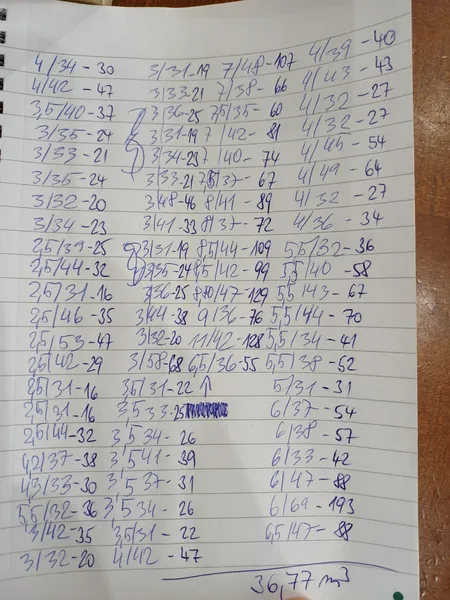 4/34-30 3/31-19 7/48-107 4/39-40
4/42-47 3/33-21 7/38-66 4/43-43
3,5/40-37 3/36-25 7,5/35-60 4/32-27
3/35-24 3/31-19 7/42-81 4/32-27
3/33-21 3/34-23 7/40-74 4/45-54
3/35-24 3/33-21 7,5/37-67 4/49-64
3/32-20 3/48-46 8/41-89 4/32-27
3/34-23 3/41-33 8/37-72 4/36-34
2,5/39-25 3/31-19 8,5/44-109 5,5/32-36
2,5/44-32 3/35-24 8,5/42-99 5,5/40-58
2,5/31-16 3/36-25 /47-129 5,5/43-67
2,5/46-35 3/44-38 9/36-76 5,5/44-70
2,5/53-47 3/32-20 11/42-128 5,5/34-41
2,5/42-29 3/58-68 6,5/36-55 5,5/38-52
2,5/31-16 3,5/31-22 ↑ 5/31-31
2,5/31-16 3,5 33-25 6/37-54
2,5/44-32 3,5 34-26 6/38-57
4,2/37-38 3,5 41-39 6/33-42
4,3/33-30 3,5 37-31 6/47-88
5,5/32-36 3,5 34-26 6/69-193
3/42-35 3,5/31-22 6,5/47-88
3/32-20 4/42-47
36,77 m³